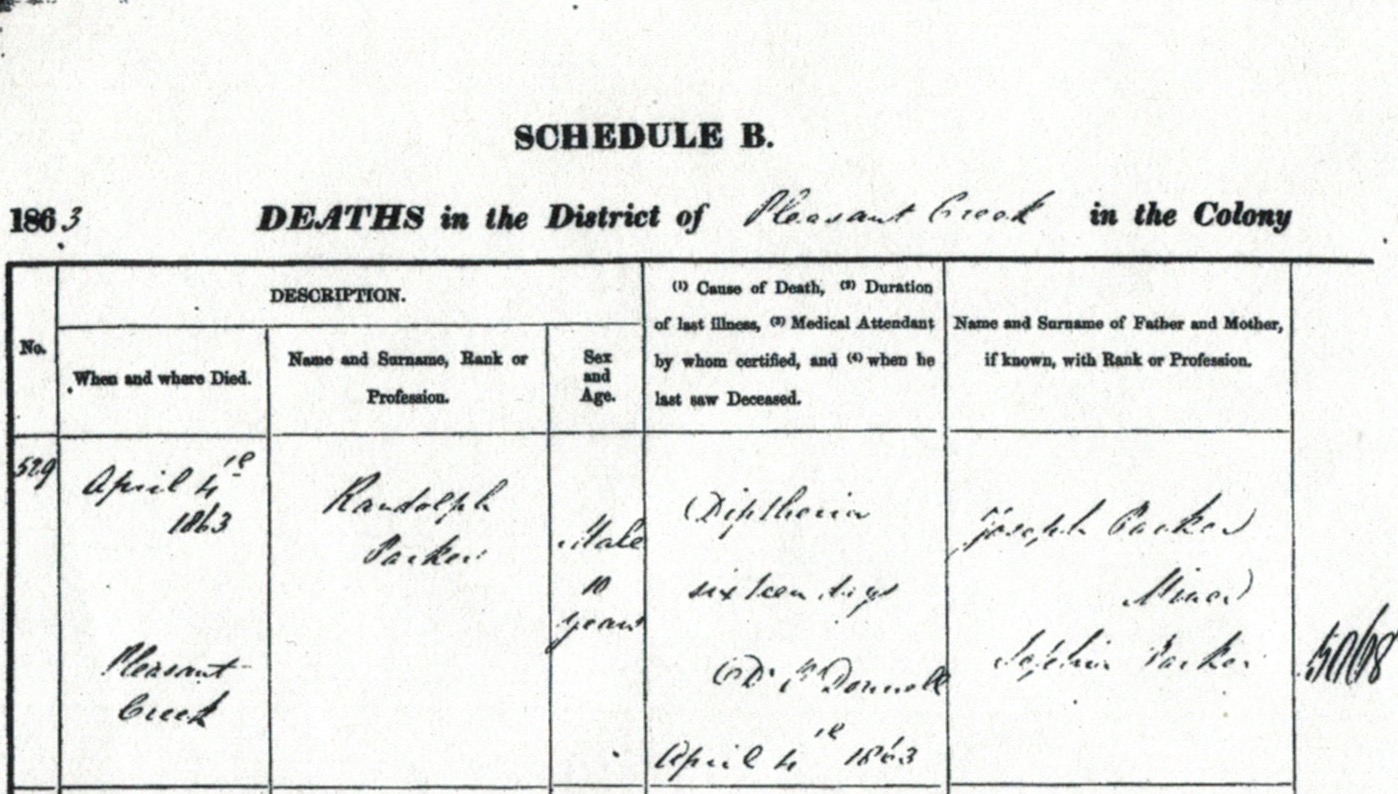 SCHEDULE B.
1863 DEATHS in the District of Pleasant Creek in the Colony
No.
DESCRIPTION.
When and where Died.
Name and Surname, Rank or
Profession.
Sex
and
Age.
(1) Cause of Death, (2) Duration
of last illness, (3) Medical Attendant
by whom certified, and (4) when he
last saw Deceased.
Name and Surname of Father and Mother,
if known, with Rank or Profession.
529
April 4th
1863
Pleasant
Creek
Randolph
Parker
Male
10
years
Diptheria
sixteen days
Donnell
April 4th 1863
Joseph Parker
Miner
Sophia Parker